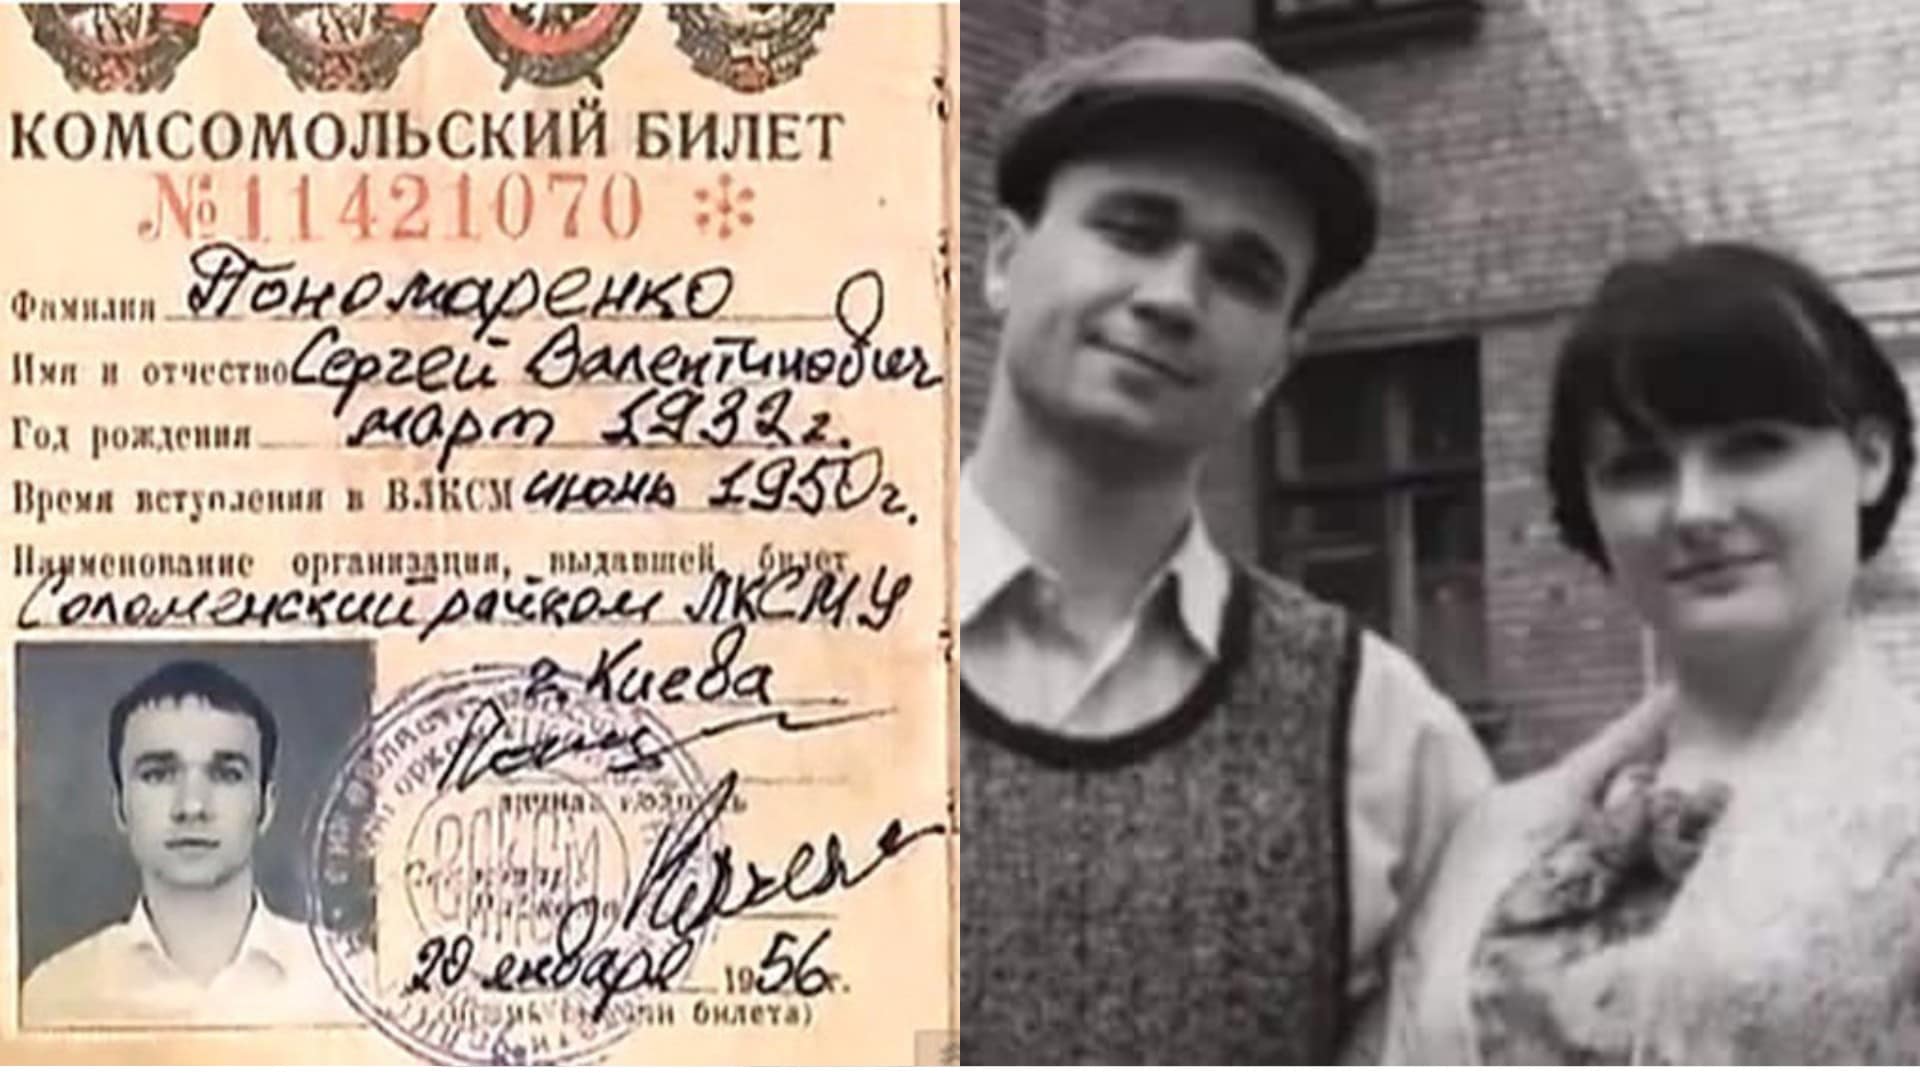 КОМСОМОЛЬСКИЙ БИЛЕТ
№ 11421070 *
Фамилия Пономаренко
Имя и отчество Сергей Валентинович
Год рождения март 1932 г.
Время вступления в ВЛКСМ июнь 1950 г.
Наименование организации, выдавшей билет
Соломенский райком ЛКСМУ
г. Киева
личная подпись
ВЛКСМ
20 января 1956 г.
билета)